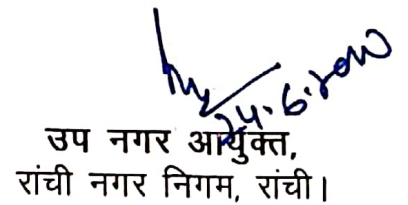 24.6.2010
उप नगर आयुक्त,
रांची नगर निगम, रांची।